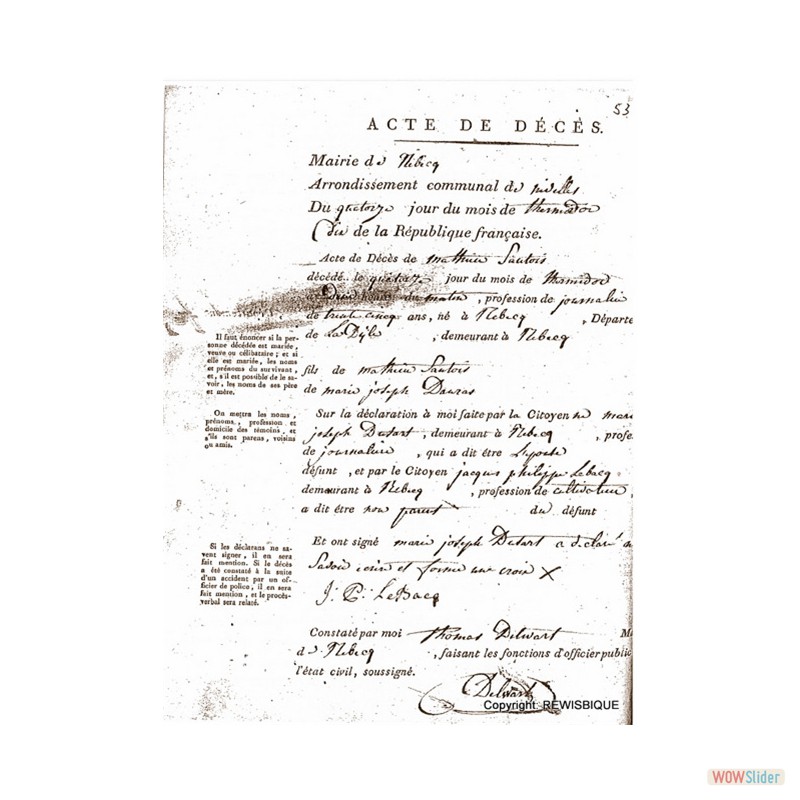 53
ACTE DE DÉCÈS.
Mairie de Rebecq
Arrondissement communal de nivelles
Du quatorze jour du mois de thermidor
dix de la République française.
Acte de Décès de mathieu Sautois
décédé le quatorze jour du mois de thermidor
heures du matin, profession de journalier
de trente cinq ans, né à Rebecq, Départe
de La Dÿle, demeurant à Rebecq
Il faut énoncer si la per-
sonne décédée est mariée,
veuve ou célibataire; et si
elle est mariée, les noms
et prénoms du survivant,
et, s'il est possible de le sa-
voir, les noms de ses père
et mère.
fils de mathieu Sautois
de marie joseph
On mettra les noms,
prénoms, profession et
domicile des témoins, et
s'ils sont parens, voisins
ou amis.
Sur la déclaration à moi faite par la Citoyenne marie
joseph Dutart, demeurant à Rebecq, profe
de journalière, qui a dit être
défunt, et par le Citoyen jacques philippe Lebacq
demeurant à Rebecq, profession de cultivateur,
a dit être non parent du défunt
Si les déclarans ne sa-
vent signer, il en sera
fait mention. Si le décès
a été constaté à la suite
d'un accident par un of-
ficier de police, il en sera
fait mention, et le procès-
verbal sera relaté.
Et ont signé marie joseph Dutart a déclaré
Savoir écrire et forme une croix X
J. P. LeBacq
Constaté par moi thomas Delwart
de Rebecq, faisant les fonctions d'officier public
l'état civil, soussigné.
Delwart
Copyright: REWISBIQUE
WOWSlider